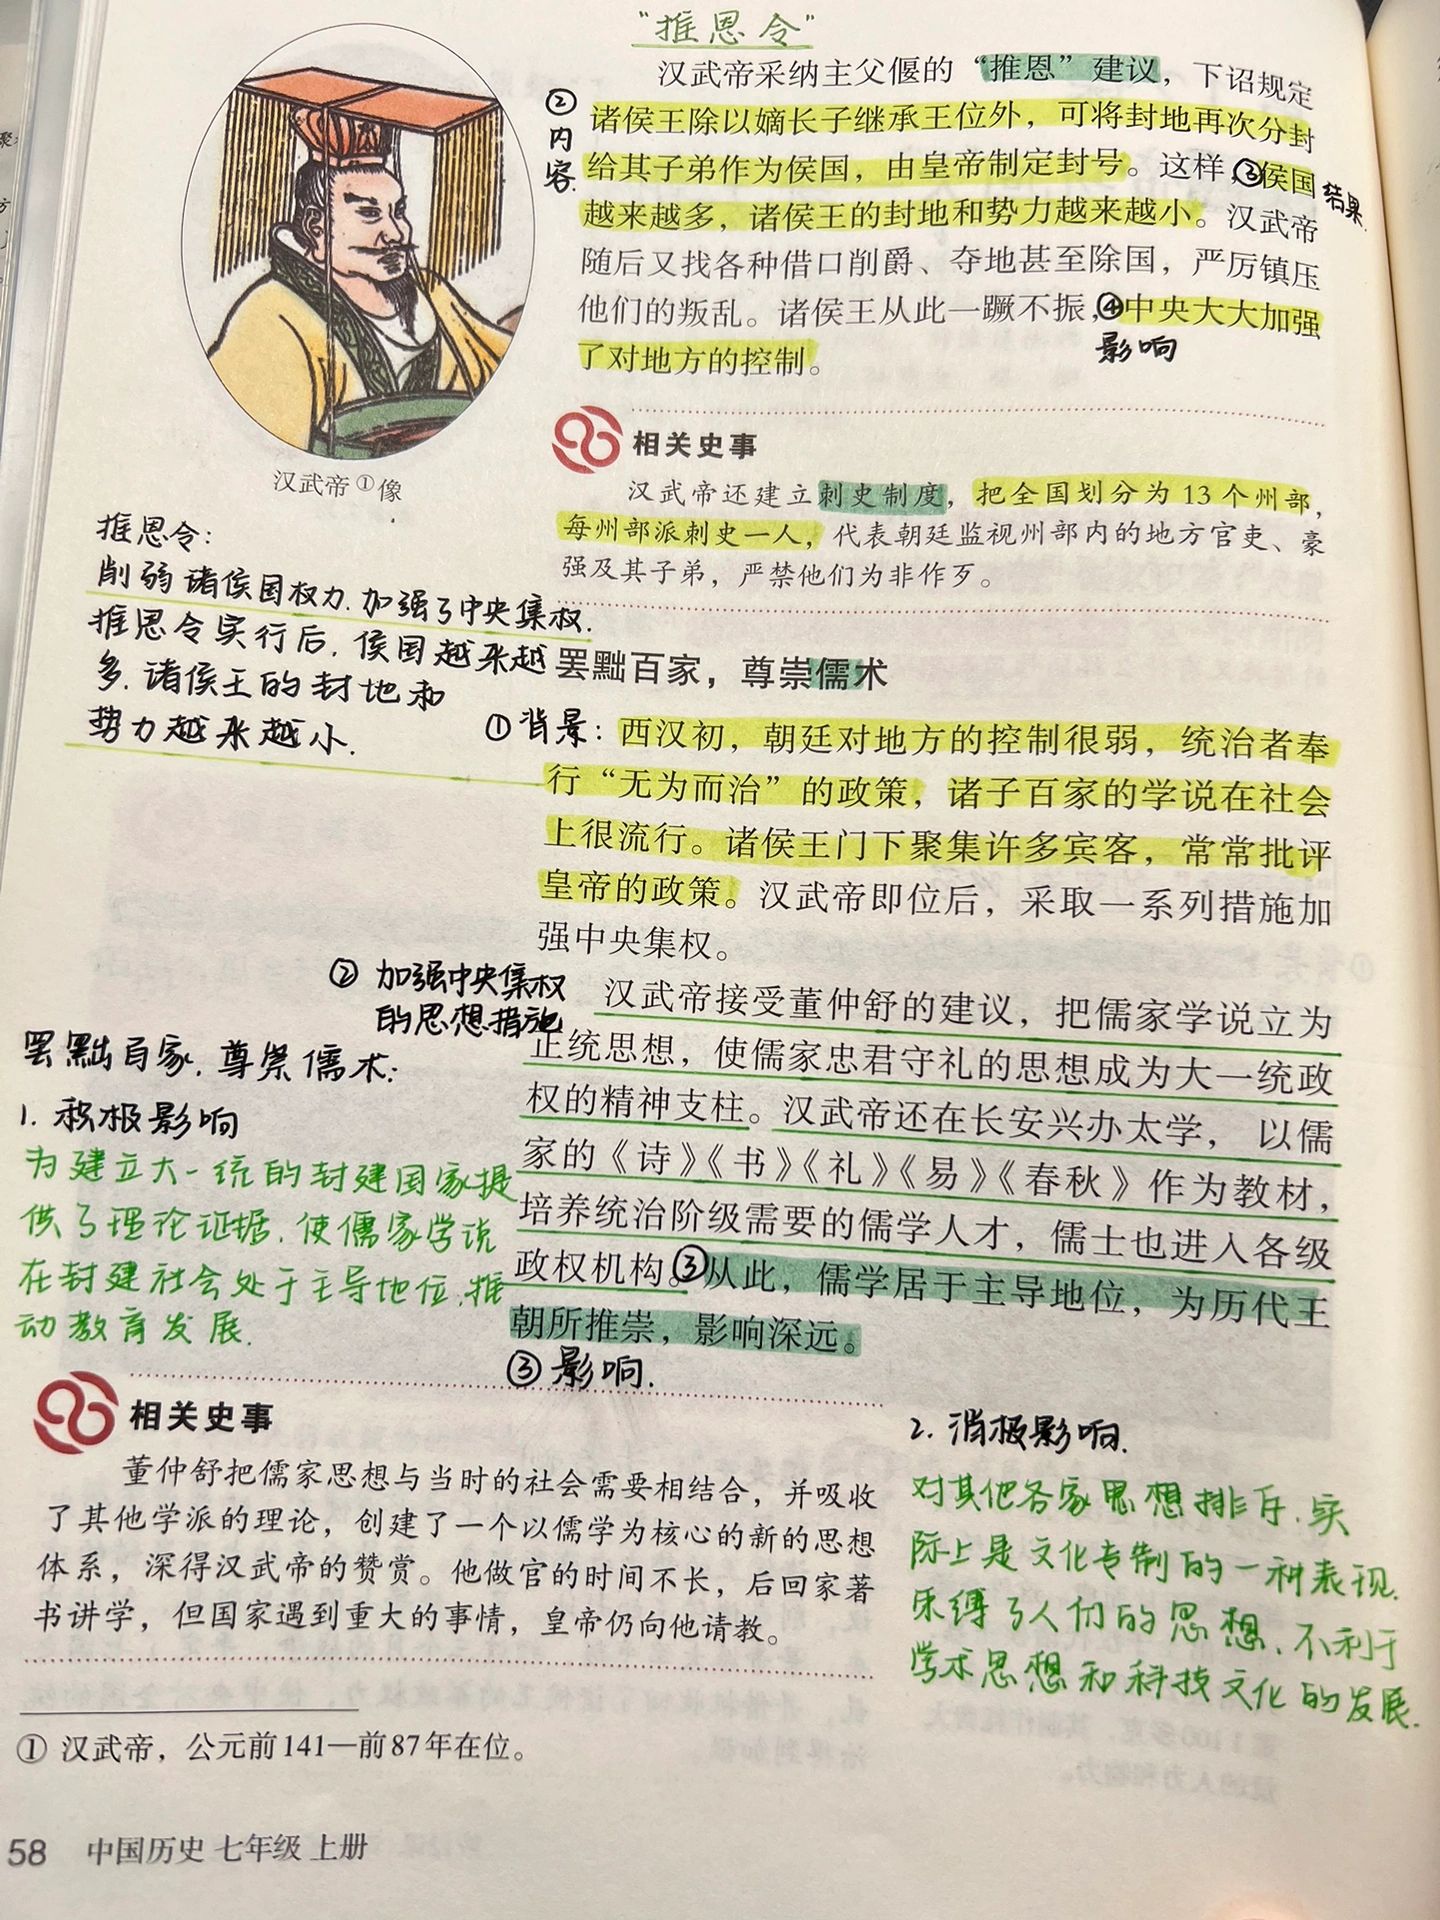 “推恩令”
汉武帝采纳主父偃的“推恩”建议，下诏规定
②内容
诸侯王除以嫡长子继承王位外，可将封地再次分封
给其子弟作为侯国，由皇帝制定封号。这样，③侯国
结果
越来越多，诸侯王的封地和势力越来越小。汉武帝
随后又找各种借口削爵、夺地甚至除国，严厉镇压
他们的叛乱。诸侯王从此一蹶不振，④中央大大加强
影响
了对地方的控制。
汉武帝①像
相关史事
汉武帝还建立刺史制度，把全国划分为13个州部，
每州部派刺史一人，代表朝廷监视州部内的地方官吏、豪
强及其子弟，严禁他们为非作歹。
推恩令：
削弱诸侯国权力.加强了中央集权.
推恩令实行后.侯国越来越
多.诸侯王的封地和
势力越来越小.
罢黜百家，尊崇儒术
①背景：
西汉初，朝廷对地方的控制很弱，统治者奉
行“无为而治”的政策，诸子百家的学说在社会
上很流行。诸侯王门下聚集许多宾客，常常批评
皇帝的政策。汉武帝即位后，采取一系列措施加
强中央集权。
②加强中央集权
的思想措施
汉武帝接受董仲舒的建议，把儒家学说立为
正统思想，使儒家忠君守礼的思想成为大一统政
权的精神支柱。汉武帝还在长安兴办太学，以儒
家的《诗》《书》《礼》《易》《春秋》作为教材，
培养统治阶级需要的儒学人才，儒士也进入各级
政权机构。③从此，儒学居于主导地位，为历代王
朝所推崇，影响深远。
③影响.
罢黜百家.尊崇儒术:
1.积极影响
为建立大一统的封建国家提
供了理论证据.使儒家学说
在封建社会处于主导地位.推
动教育发展.
相关史事
董仲舒把儒家思想与当时的社会需要相结合，并吸收
了其他学派的理论，创建了一个以儒学为核心的新的思想
体系，深得汉武帝的赞赏。他做官的时间不长，后回家著
书讲学，但国家遇到重大的事情，皇帝仍向他请教。
2.消极影响.
对其他各家思想排斥.实
际上是文化专制的一种表现.
束缚了人们的思想.不利于
学术思想和科技文化的发展.
①汉武帝，公元前141—前87年在位。
58 中国历史 七年级 上册